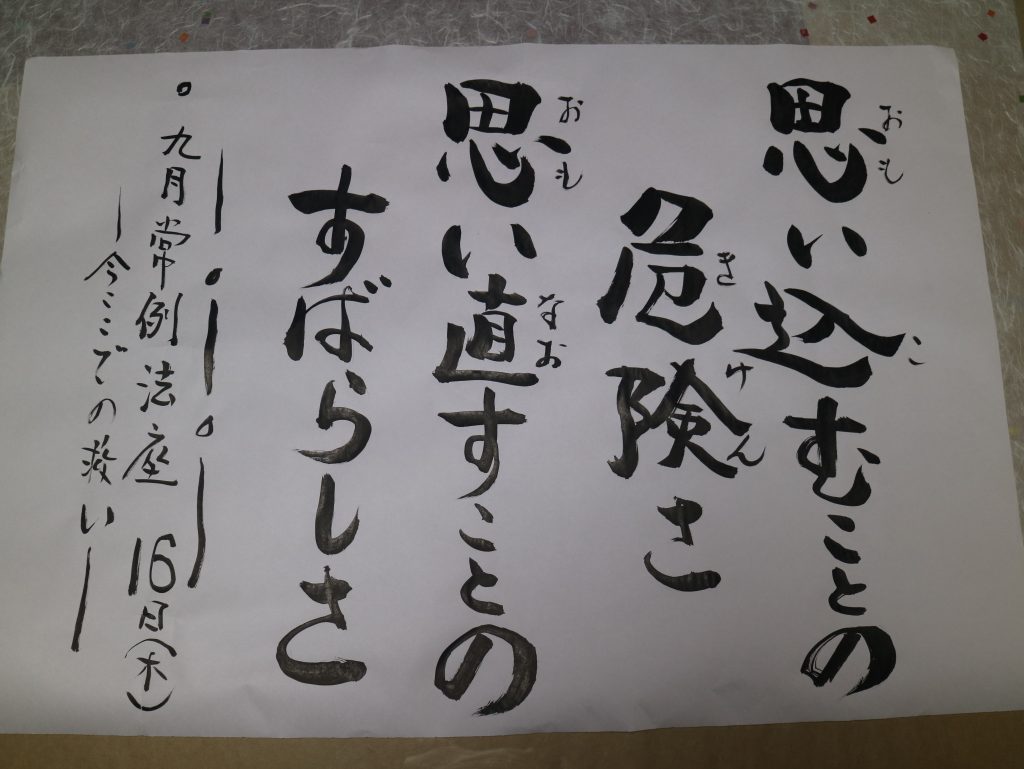 思い込むことの
おも こ
危険さ
きけん
思い直すことの
おも なお
すばらしさ
。九月常例法座 16日(木)
―今ここでの救い―